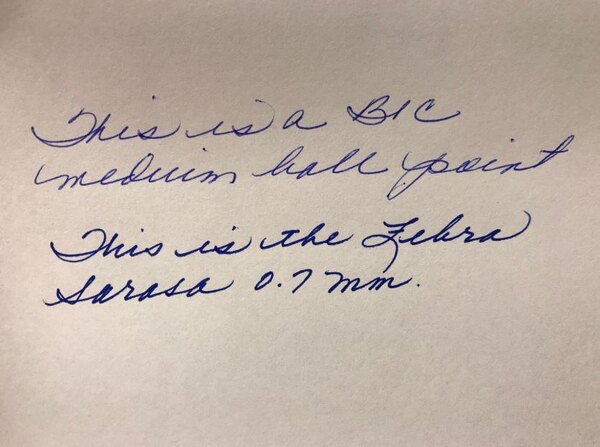 This is a BIC
medium ball point
This is the Zebra
Sarasa 0.7 mm.